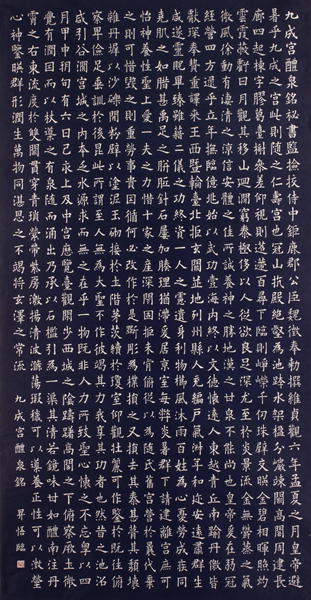 九成宮醴泉銘秘書監撿挍侍中鉅鹿郡公臣魏徵奉勅撰維貞觀六年孟夏之月皇帝避
暑乎九成之宮此則隨之仁壽宮也冠山抗殿絕壑為池跨水架楹分巖竦闕高閣周建長
廊四起棟宇膠葛臺榭參差仰視則迢遰百尋下臨則崢嶸千仞珠璧交暎金碧相暉照灼
雲霞蔽虧日月觀其移山迴澗窮泰極侈以人從欲良足深尤至於炎景流金無鬱蒸之氣
微風徐動有淒清之涼信安體之佳所誠養神之勝地漢之甘泉不能尚也皇帝爰在弱冠
經營四方逮乎立年撫臨億兆始以武功壹海內終以文德懷遠人東越青丘南踰丹徼皆
獻琛奉贄重譯來王西暨輪臺北拒玄闕並地列州縣人充編戶氣淑年和邇安遠肅群生
咸遂靈貺畢臻雖藉二儀之功終資一人之慮遺身利物櫛風沐雨百姓為心憂勞成疾同
堯肌之如腊甚禹足之胼胝針石屢加腠理猶滯爰居京室每弊炎暑群下請建離宮庶可
怡神養性聖上愛一夫之力惜十家之產深閉固拒未肯俯從以為隨氏舊宮營於曩代棄
之則可惜毀之則重勞事貴因循何必改作於是斲雕為樸損之又損去其泰甚葺其頹壞
雜丹墀以沙礫間粉壁以塗泥玉砌接於土階茅茨續於瓊室仰觀壯麗可作鑒於既往俯
察卑儉足垂訓於後昆此所謂至人無為大聖不作彼竭其力我享其功者也然昔之池沼
咸引谷澗宮城之內本乏水源求而無之在乎一物既非人力所致聖心懷之不忘粵以四
月甲申朔旬有六日己亥上及中宮歷覽臺觀閑步西城之陰躊躇高閣之下俯察厥土微
覺有潤因而以杖導之有泉隨而涌出乃承以石檻引為一渠其清若鏡味甘如醴南注丹
霄之右東流度於雙闕貫穿青瑣縈帶紫房激揚清波滌蕩瑕穢可以導養正性可以澂瑩
心神鑒暎群形潤生萬物同湛恩之不竭將玄澤之常流 九成宮醴泉銘 昇悟臨